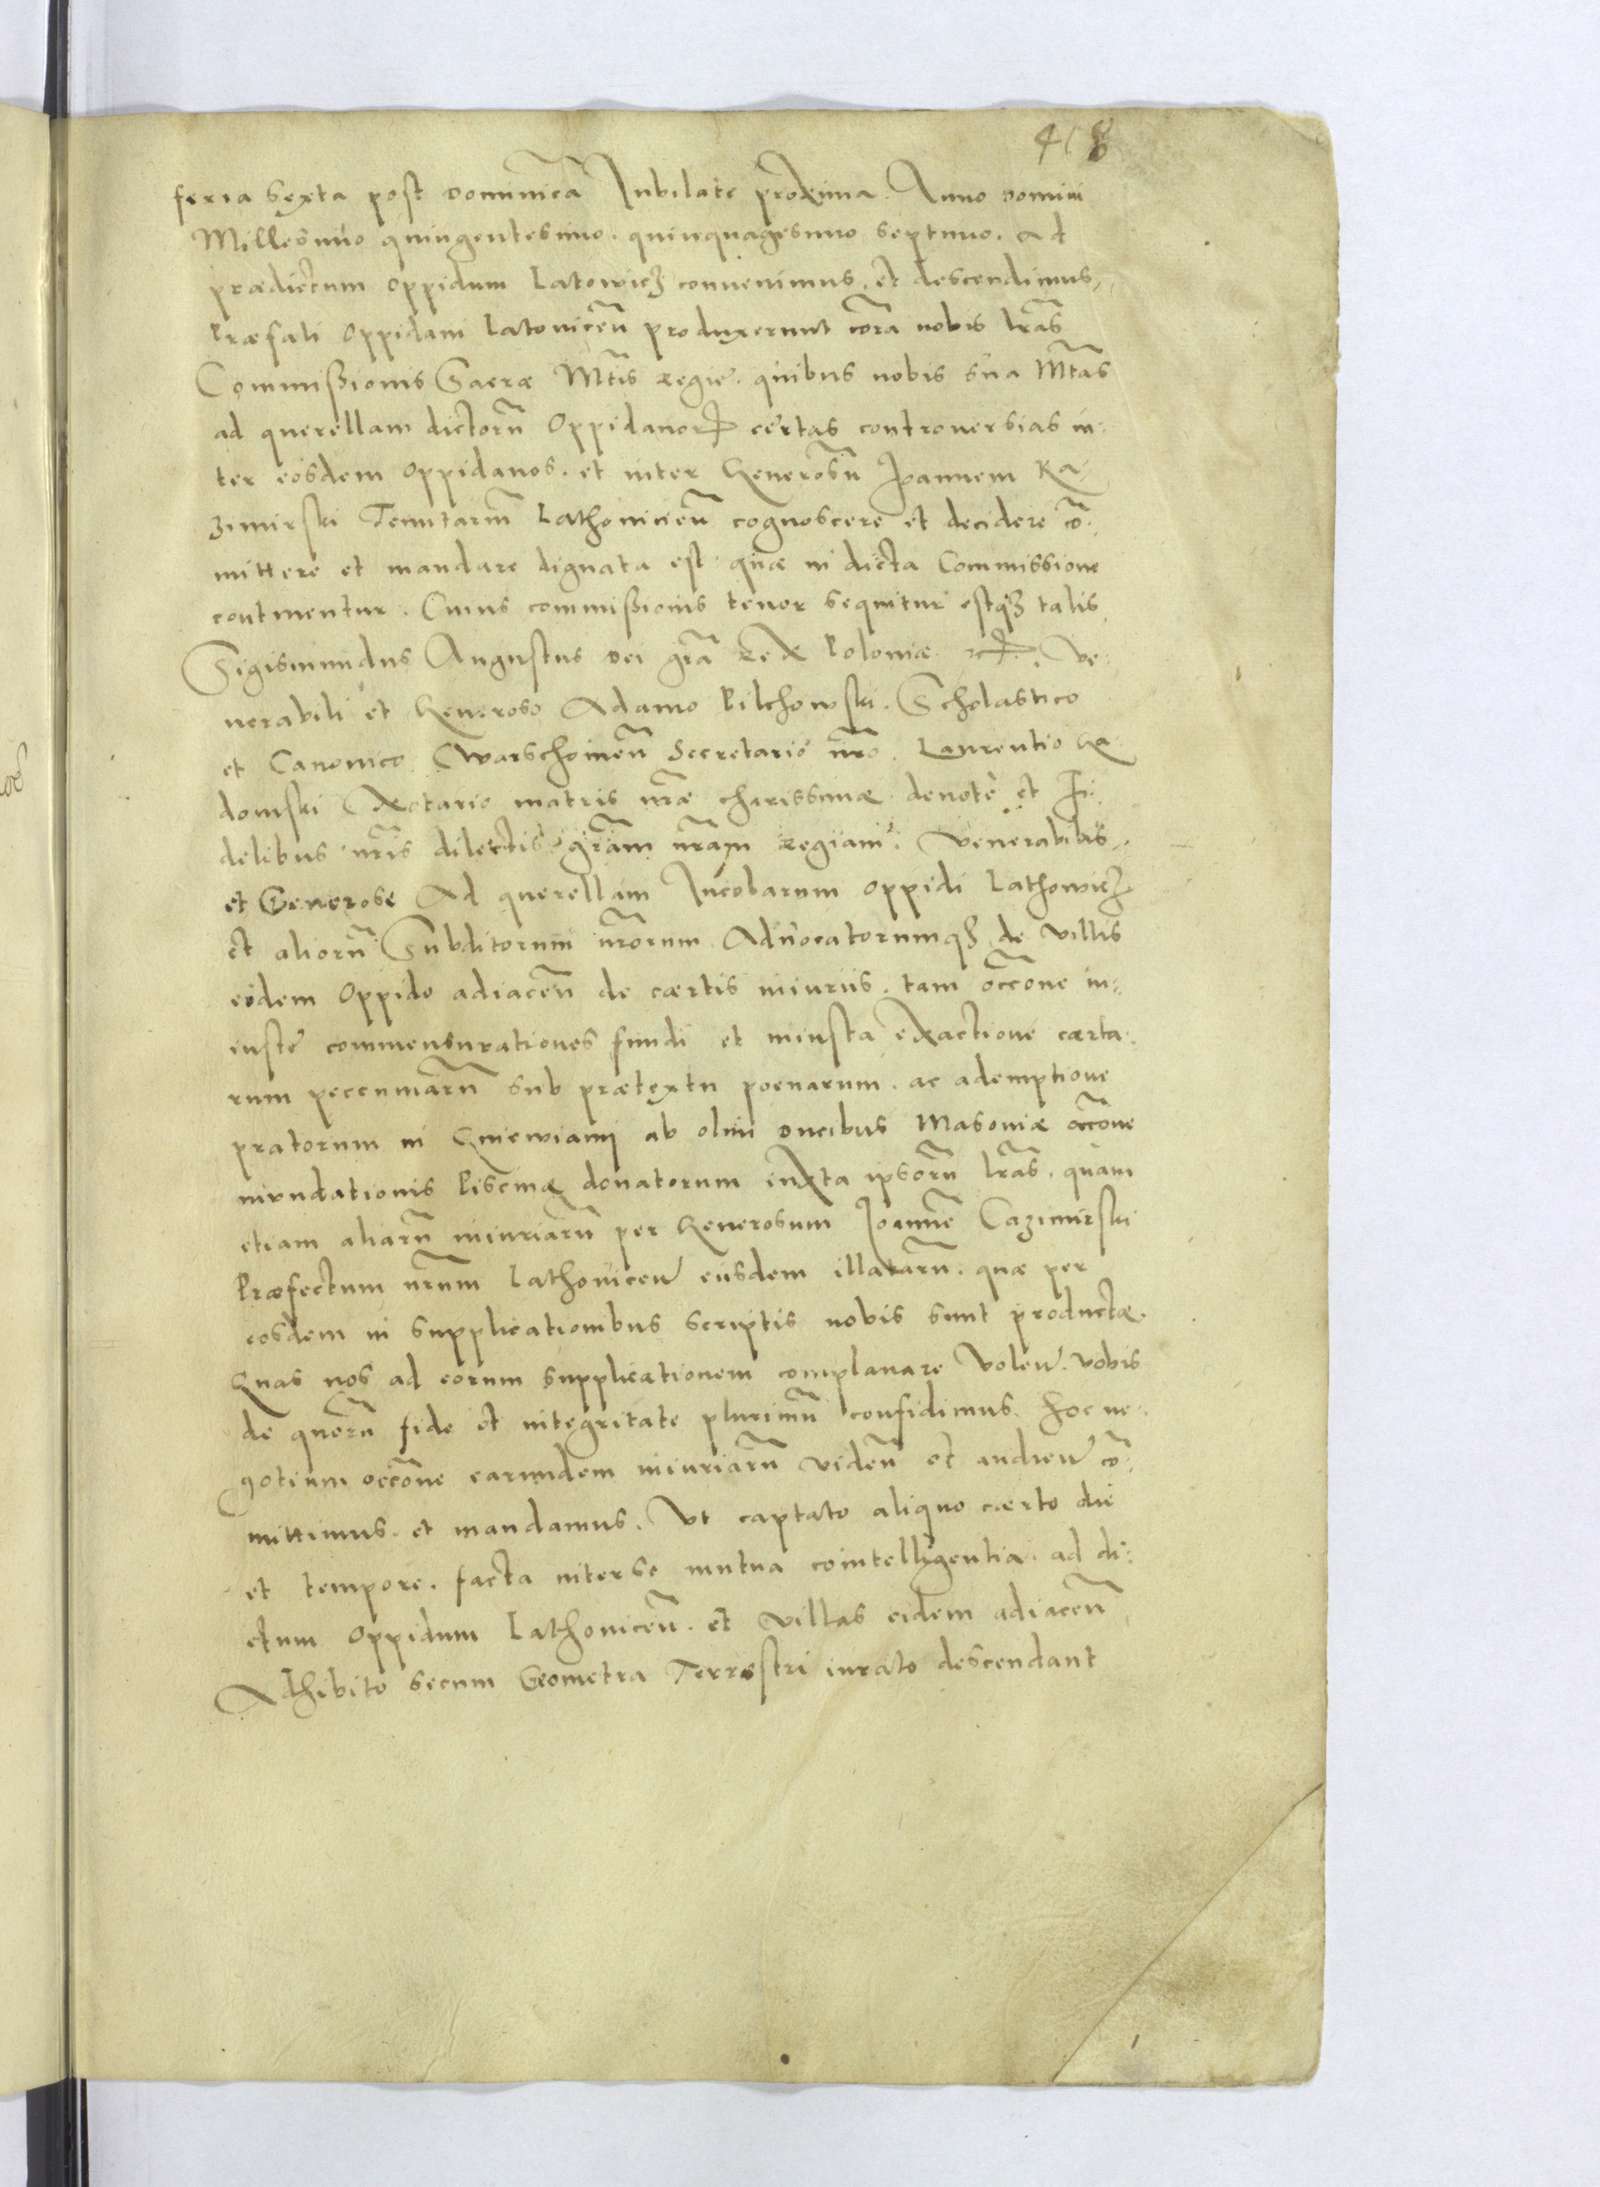 418
feria sexta post dominicā Iubilate proxima. Anno domini
Millesimo quingentesimo. quinquagesimo septimo. ad
prædictum oppidum Latowicz convenimus. et descendimus,
Præfati Oppidani Latovicen̄ produxerunt corā nobis lr̄as
Commißionis Sacræ Mt̄is regie. quibus nobis sua Mt̄as
ad querellam dictorū Oppidanorꝝ certas controversias in
ter eosdem oppidanos. et inter Generosū Ioannem Ka
zimirski Tenutariū Lathovicien̄ cognoscere et decidere cō
mittere et mandare dignata est quæ in dicta Commissione
continentur. Cuius commißionis tenor sequitur estqꝫ talis.
Sigismundus Augustus dei gr̄a Rex Poloniæ etc. Ve
nerabili et Generoso Adamo Pilchowski. Scholastico
et Canonico Warschovien̄ Secretario nr̄o. Laurentio Ra
domski Notario matris nr̄æ charissimæ. devotè et Fi
delibus nr̄is dilectis gr̄am nr̄am regiam. Venerabilis
et Generose Ad querellam Incolarum oppidi Lathowicz
et aliorū Subditorum nr̄orum Advocatorumqꝫ de villis
eidem Oppido adiacen̄ de cærtis iniuriis. tam occōne in
iuste commensurationes fundi et iniusta exactione cærta
rum peccuniarū sub prætextu poenarum. ac ademptione
pratorum in Gniewiami ab olim ducibus Masoviæ occōne
inundationis Piscinæ donatorum iuxta ipsorū lr̄as. quam
etiam aliarū iniuriarū per Generosum Ioannē Cazimirski
Præfectum nr̄um Lathovicen̄ eiisdem illatarū. quæ per
eosdem in supplicationibus scriptis nobis sunt productæ.
Quas nos ad eorum supplicationem complanare volen̄. vobis
de quorū fide et integritate plurimū confidimus. Hoc ne
gotium occōne earundem iniuriarū viden̄ et audien̄ cō
mittimus. et mandamus. Ut captato aliquo cærto die
et tempore. facta inter se mutua cointelligentia. ad di
ctum Oppidum Lathovicen̄. et villas eidem adiacen̄
Adhibito secum Geometra Terrestri iurato descendant